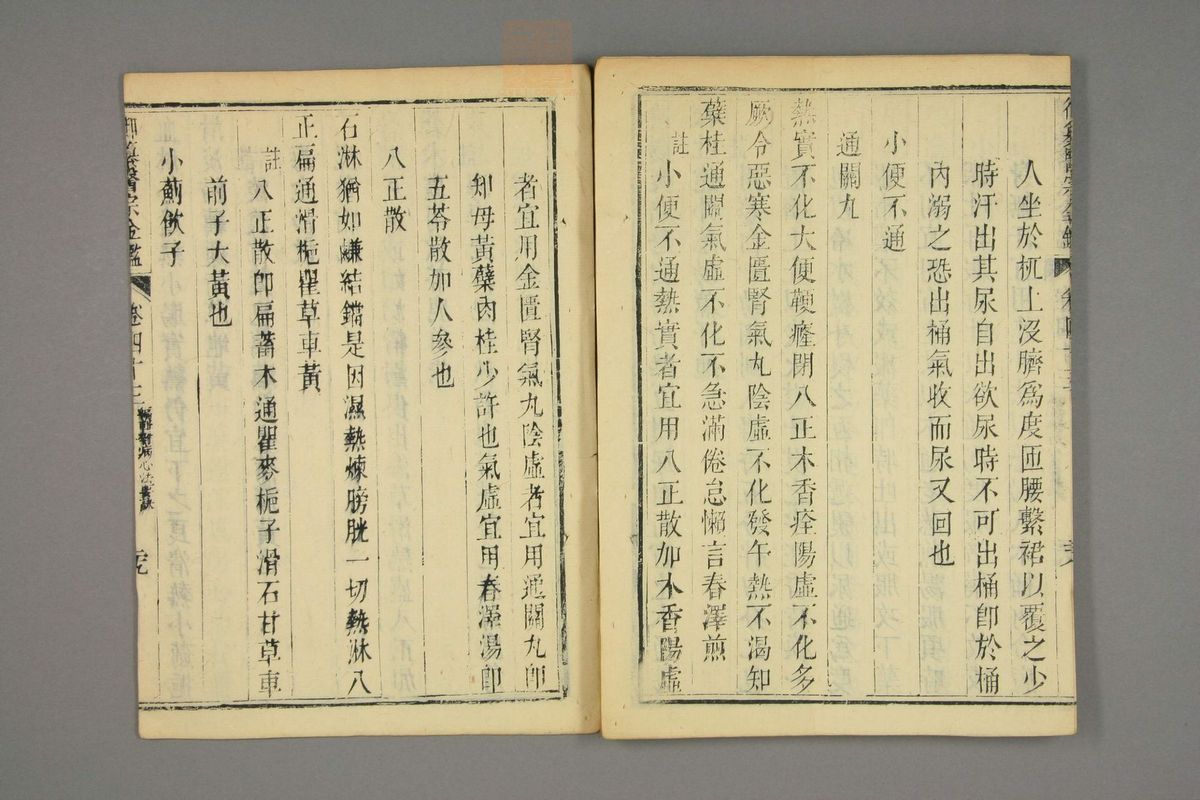 人坐於杌上沒臍爲度匝腰繫裙以覆之少
時汗出其尿自出欲尿時不可出桶卽於桶
內溺之恐出桶氣收而尿又回也
小便不通
通關丸
熱實不化大便鞕癃閉八正木香痊陽虛不化多
厥冷惡寒金匱腎氣丸陰虛不化發午熱不渴知
蘗桂通關氣虛不化不急滿倦怠懶言春澤煎
註 小便不通熱實者宜用八正散加木香陽虛
者宜用金匱腎氣丸陰虛者宜用通關丸卽
知母黃蘗肉桂少許也氣虛宜用春澤湯卽
五苓散加人參也
八正散
石淋猶如鹻結鐺是因濕熱煉膀胱一切熱淋八
正扁通滑梔瞿草車黃
註 八正散卽扁蓄木通瞿麥梔子滑石甘草車
前子大黃也
小薊飲子
御纂醫宗金鑑 卷四十三